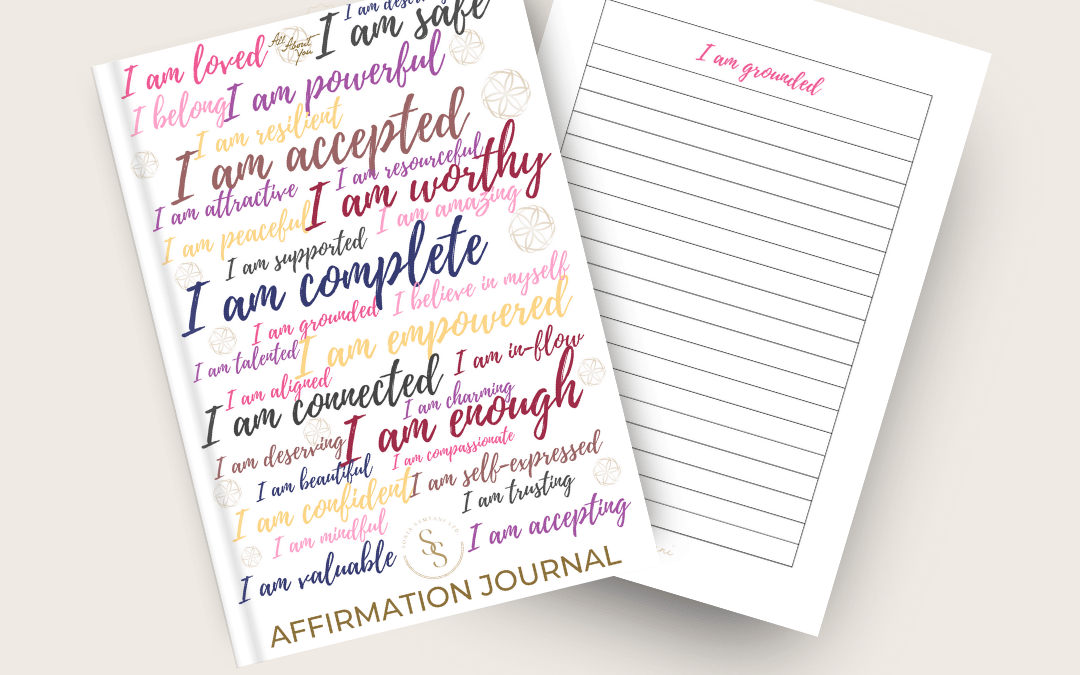 I am deserving
I am safe
All About
You
I am loved
I am powerful
I belong
I am resilient
I am accepted
I am resourceful
I am worthy
I am attractive
I am amazing
I am peaceful
I am supported
I am complete
I believe in myself
I am grounded
I am empowered
I am talented
I am in-flow
I am aligned
I am connected
I am charming
I am enough
I am deserving
I am compassionate
I am beautiful
I am self-expressed
I am confident
I am trusting
I am mindful
I am accepting
SS
I am valuable
AFFIRMATION JOURNAL
I am grounded